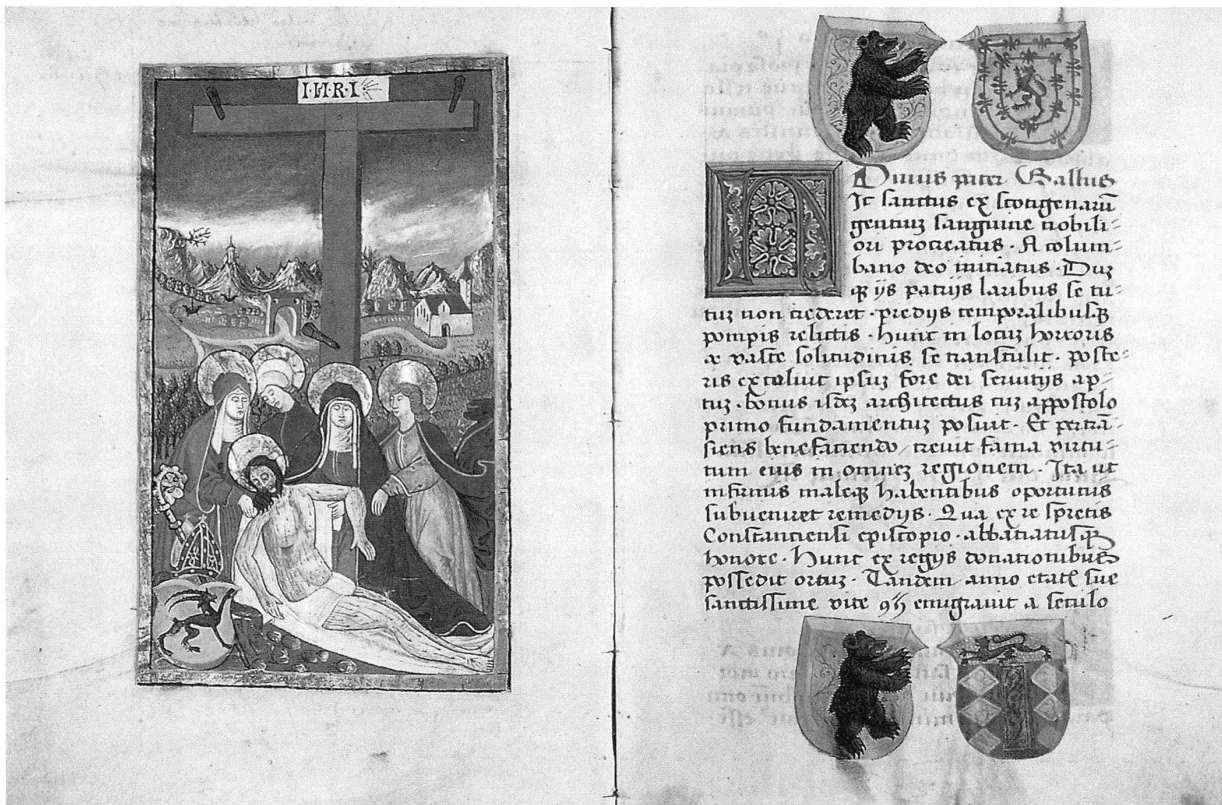 I·N·R·I
Diuus pater Gallus
It sanctus ex scotigenarū
gentiuʒ sanguine nobili=
ori procreatus · A colum=
bano deo initiatus · Duʒ
qʒ ijs patrijs laribus se tu=
tuʒ non crederet · predijs temporalibusqʒ
pompis relictis · hunc in locuʒ horroris
⁊ vaste solitudinis se transtulit · poste=
ris excoluit ipsuʒ fore dei seruitijs ap=
tuʒ · bonus isdeʒ architectus cuʒ appostolo
primo fundamentuʒ posuit · Et pertrā=
siens benefaciendo / creuit fama virtu=
tum eius in omneʒ regionem · Ita ut
infirmis maleqʒ habentibus oportunis
subueniret remedijs · Qua ex re spretis
Constanciensi episcopio · abbaciatusqʒ
honore · Hunc ex regijs donationibus
possedit ortuʒ · Tandem anno etatē sue
sanctissime vite emigrauit a seculo